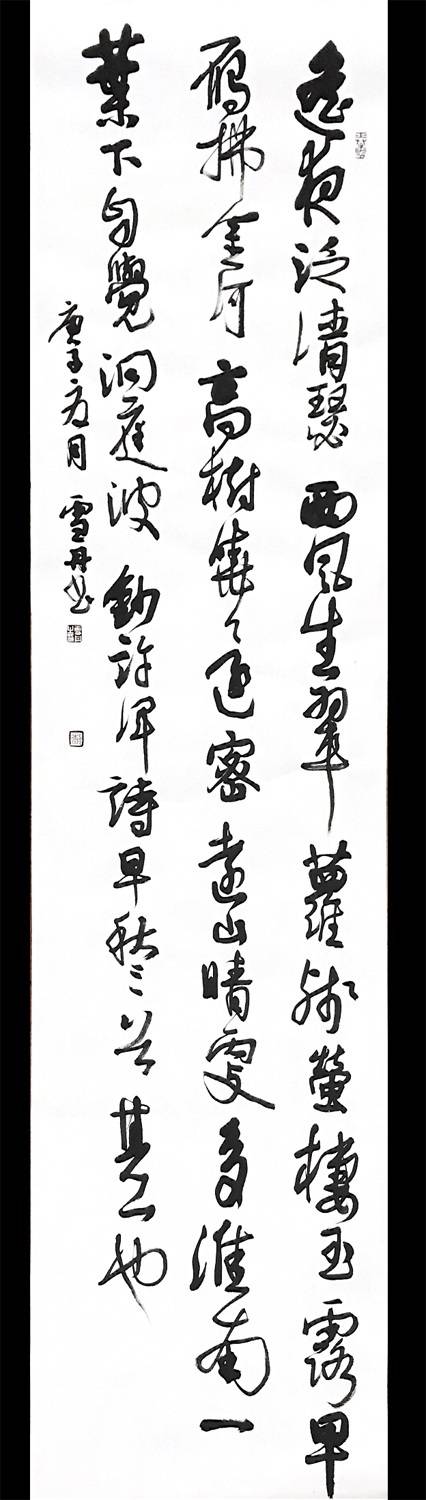 遙夜泛清瑟西風生翠蘿殘螢棲玉露早
鴈拂金河高樹曉還密遠山晴更多淮南一
葉下自覺洞庭波鈔許渾詩早秋三首其一也
庚子夏月雪丹書